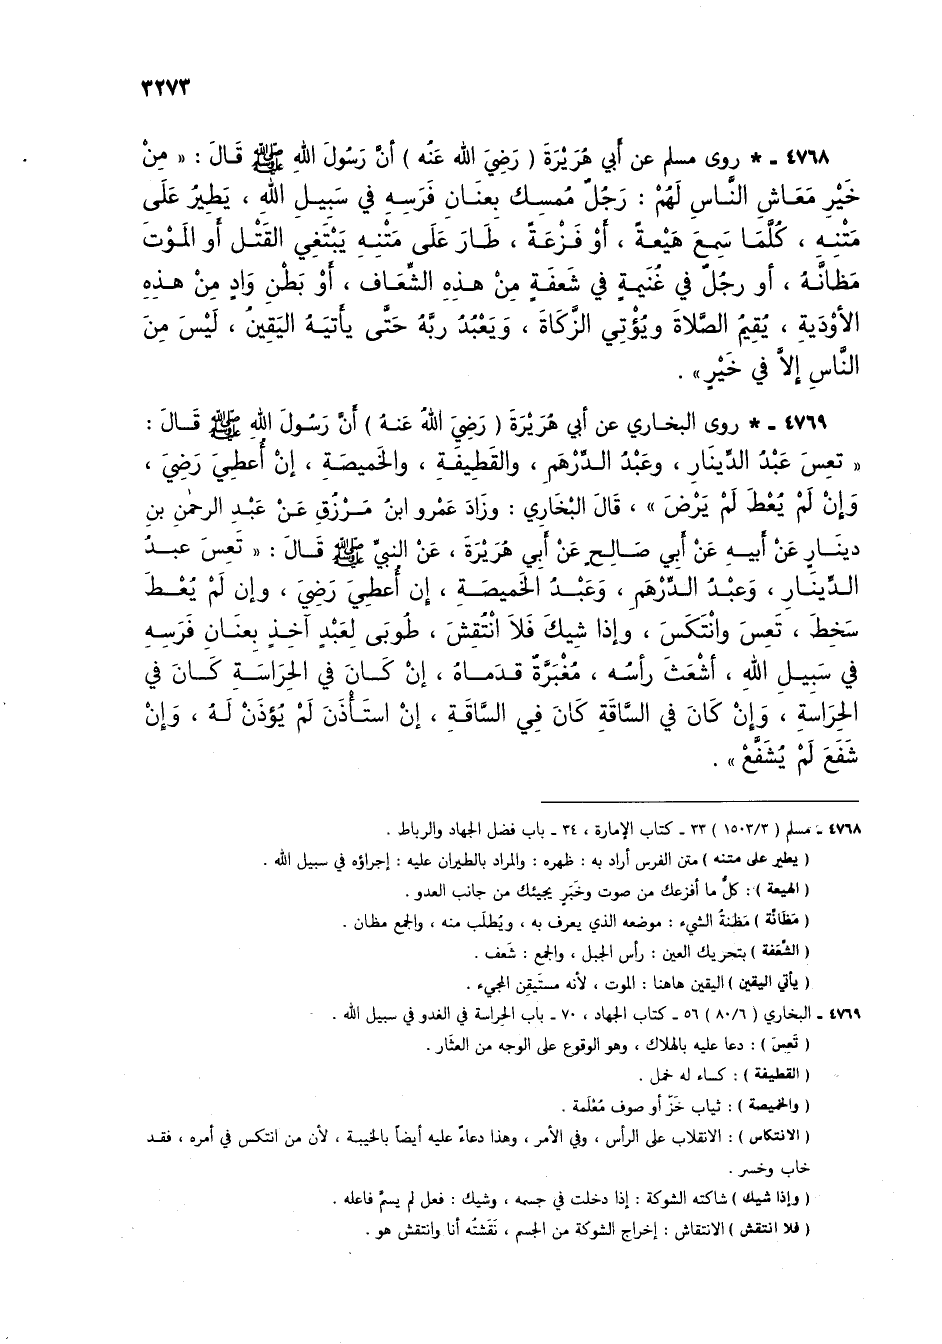 ٣٢٧٣
٤٧٦٨ ـ * روى مسلم عن أَبي هُرَيْرَةَ ( رَضِيَ اللهُ عَنْه ) أنَّ رَسُولَ اللهِ ﷺ قَالَ : « مِنْ
خَيْرِ مَعَاشِ النَّاسِ لَهُمْ : رَجُلٌ مُمسِك بعِنَانِ فَرَسِه في سَبِيلِ اللهِ ، يَطِيرُ عَلَى
مَتْنِه ، كُلَّمَا سَمِعَ هَيْعةً ، أَوْ فَزْعَةً ، طَارَ عَلَى مَتْنِهِ يَبْتَغِي القَتْلَ أو المَوْتَ
مَظانَّهُ ، أو رجُلٌ في غُنَيمةٍ في شَعفَةٍ مِنْ هذهِ الشِّعَاف ، أَوْ بَطْنِ وَادٍ مِنْ هذه
الأوْدَيةِ ، يُقِيمُ الصَّلاةَ ويُؤْتِي الزَّكَاةَ ، وَيَعْبُدُ ربَّهُ حَتَّى يأتيَهُ اليَقينُ ، لَيْسَ مِنَ
النَّاسِ إلاَّ في خَيْرٍ» .
٤٧٦٩ ـ * روى البخاري عن أبي هُرَيْرَةَ ( رَضِيَ اللهُ عَنهُ ) أَنَّ رَسُولَ اللهِ ﷺ قَالَ :
« تعِسَ عَبْدُ الدِّينَارِ ، وعَبْدُ الدِّرْهَمِ ، والقَطِيفَةِ ، والخَميصَةِ ، إنْ أُعطِيَ رَضِيَ ،
وَإِنْ لَمْ يُعْطَ لَمْ يَرْضَ » ، قَالَ البُخَاري : وزَادَ عَمْرو ابنُ مَرْزُقٍ عَنْ عَبْدِ الرحمٰنِ بنِ
دينَارٍ عَنْ أَبيهِ عَنْ أَبي صَالحٍ عَنْ أَبي هُرَيْرَةَ ، عَنْ النبيِّ ﷺ قَالَ : « تَعِسَ عبدُ
الدِّينَارِ ، وَعبْدُ الدِّرْهَمِ ، وَعَبْدُ الخَميصَةِ ، إِن أُعطِيَ رَضِيَ ، وإن لَمْ يُعْطَ
سَخِطَ ، تَعِسَ وانْتَكَسَ ، وإذا شِيكَ فَلاَ انْتُقِشَ ، طُوبَى لِعَبْدٍ آخِذٍ بعِنَانِ فَرَسِهِ
في سَبِيلِ اللهِ ، أَشْعَثَ رأسُه ، مُغْبَرَّةٌ قدَمَاهُ ، إنْ كَانَ في الحِرَاسَةِ كَانَ في
الحِرَاسةِ ، وَإِنْ كَانَ في السَّاقَةِ كَانَ فِي السَّاقَةِ ، إنْ استَأْذَنَ لَمْ يُؤذَنْ لَهُ ، وَإِنْ
شَفَعَ لَمْ يُشَفَّعْ» .
٤٧٦٨ ـ مسلم ( ١٥٠٣/٣ ) ٣٣ ـ كتاب الإمارة ، ٣٤ ـ باب فضل الجهاد والرباط .
( يطير على متنه ) متن الفرس أراد به : ظهره : والمراد بالطيران عليه : إجراؤه في سبيل الله .
( الهيعة ) : كلُّ ما أفزعك من صوت وخَبَرٍ يجيئك من جانب العدو .
( مَظَانَّة ) مَظنةُ الشيء : موضعه الذي يعرف به ، ويُطلَب منه ، والجمع مظان .
( الشَّعَفة ) بتحريك العين : رأس الجبل ، والجمع : شَعف .
( يأتي اليقين ) اليقين هاهنا : الموت ، لأنه مستَيقن المجيء .
٤٧٦٩ ـ البخاري ( ٨٠/٦ ) ٥٦ ـ كتاب الجهاد ، ٧٠ ـ باب الحراسة في الغدو في سبيل الله .
( تَعِسَ ) : دعا عليه بالهلاك ، وهو الوقوع على الوجه من العثَار .
( القطيفة ) : كساء له خمل .
( والخميصة ) : ثياب خَزّ أو صوف مُعْلَمة .
( الانتكاس ) : الانقلاب على الرأس ، وفي الأمر ، وهذا دعاءٌ عليه أيضاً بالخيبة ، لأن من انتكس في أمره ، فقد
خاب وخسر .
( وإذا شيك ) شاكته الشوكة : إذا دخلت في جسمه ، وشيك : فعل لم يسمَّ فاعله .
( فلا انتقش ) الانتقاش : إخراج الشوكة من الجسم ، نَقَشتُه أنا وانتقش هو .